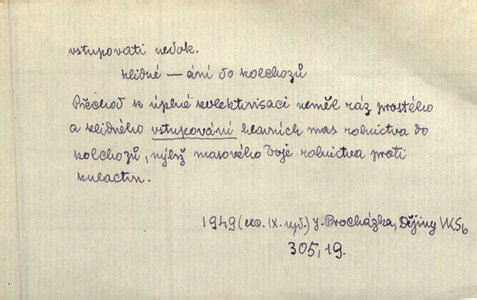 vstupovati nedok.
klidné — ání do kolchozů
Přechod k úplné kolektivisaci neměl ráz prostého
a klidného vstupování hlavních mas rolnictva do
kolchozů, nýbrž masového boje rolnictva proti
kulactvu.
1949 (exc. IX. vyd.) J. Procházka, Dějiny VKSb
305, 19.